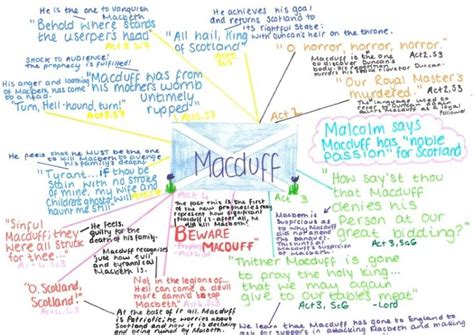 He is the one to vanquish
Macbeth
"Behold where stands
the userper's head"
Act 5.Sc7
He achieves his goal
and returns Scotland to
its rightful state:
with Duncan's heir on the throne.
"All hail, King
of Scotland"
"O horror, horror, horror."
Act 2.S3
Macduff is the one
to discover Duncan's
body:
"Our Royal Master's
murdered."
Act 2.S3
SHOCK TO AUDIENCE:
The prophecy is fulfilled!
"Macduff was from
his mothers womb
Untimely
ripped"
His anger and loathing of
Macbeth has come
to a head.
"Turn, Hell-hound, turn!"
Act 1
Malcolm says
Macduff has "noble
passion" for Scotland
Macduff
He feels that he must be the one
to kill Macbeth to avenge
his family's death
"Tyrant... if thou be
Slain with no stroke
of mine, my wife and
Children's ghosts will
haunt me still"
How say'st thou
that Macduff
denies his
Person at our
great bidding?"
Act 3, Sc4
Macbeth is
suspicious
as to why
Macduff did
not attend
the banquet.
"Sinful
Macduff; they
were all struck
for thee..."
He feels
guilty for the
death of his family.
The fact this is the first
of the new prophecies may
represent how significant
Macduff is
"BEWARE
MACDUFF"
Macduff recognises
just how evil
and tyrannical
Macbeth is.
"Not in the legions of
Hell can come a devil
more damn'd to top
Macbeth"
"O, Scotland,
Scotland!"
At the best of it all, Macduff
is Patriotic; he worries about
Scotland and how it is declining
and being ruined by Macbeth
"Thither Macduff is gone
to pray the holy king...
that we may again
give to our tables meat"
-Lord
Act 3, Sc6
We learn that Macduff has gone to England to